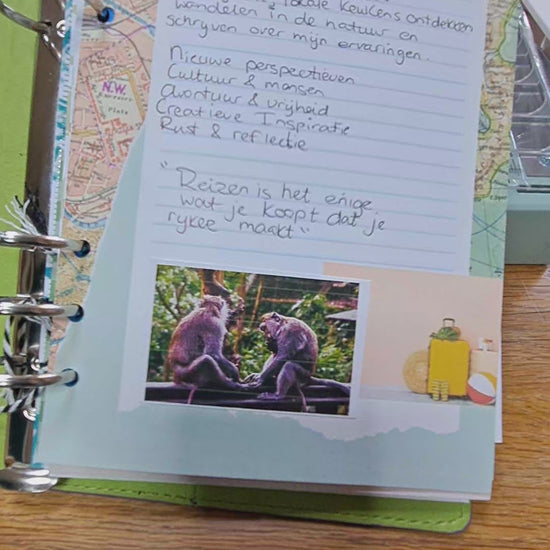 lokale keukens ontdekken
wandelen in de natuur en
schrijven over mijn ervaringen.
Nieuwe perspectieven
Cultuur & mensen
Avontuur & vrijheid
Creatieve Inspiratie
Rust & reflectie
"Reizen is het enige
wat je koopt dat je
rijker maakt"
N.W.
Plate